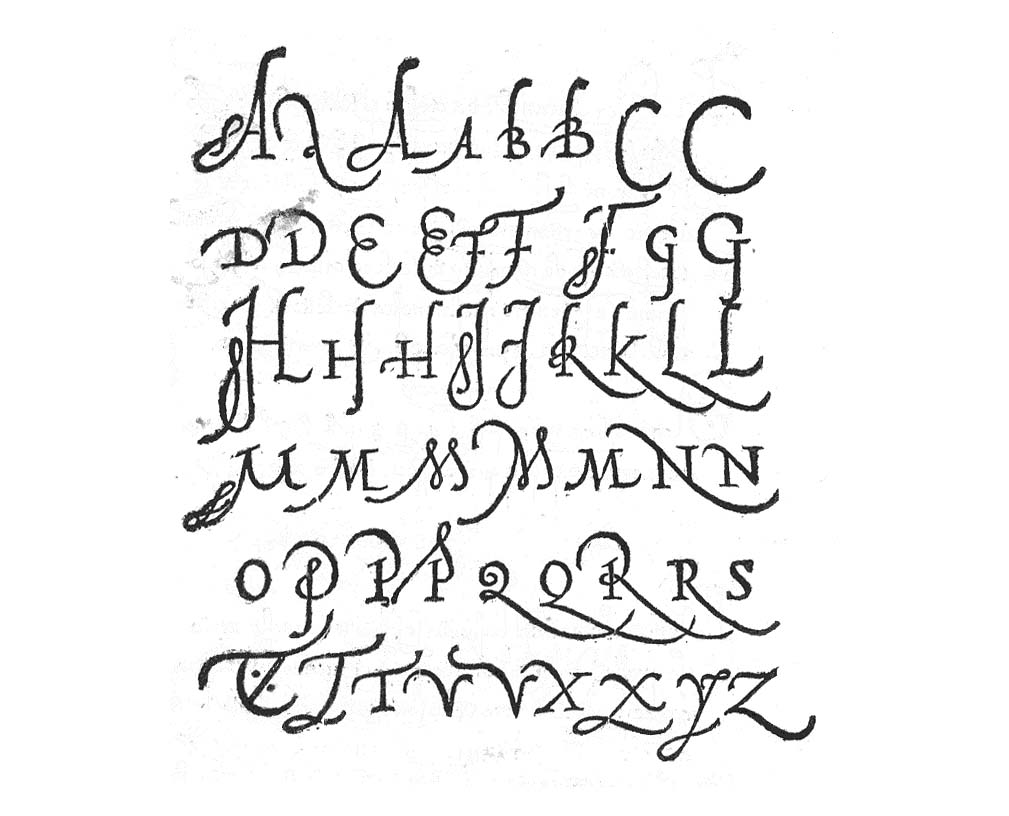 A A A B B C C
D D E E F F F G G
H H H J J K K L L
M M M M M N N
O P P P Q Q R R S
T T T V V X X Y Z